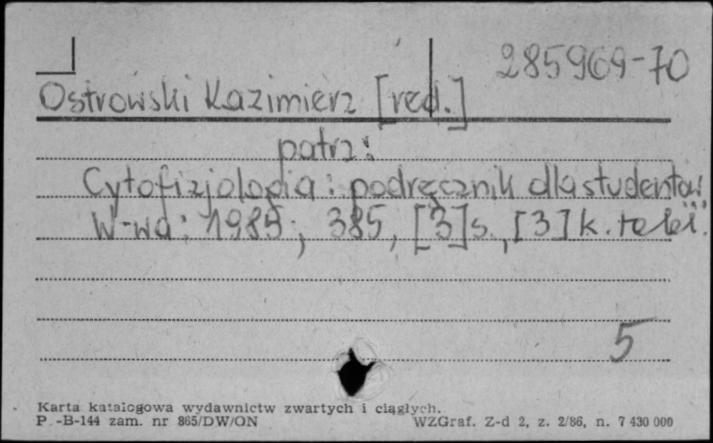 285969-70
Ostrowski Kazimierz [red.]
patrz:
Cytofizjologia: podręcznik dla studentów
W-wa: 1985; 385, [3]s., [3] k.
5
Karta katalogowa wydawnictw zwartych i ciągłych.
P.-B-144 zam. nr 865/DW/ON WZGraf. Z-d 2, z. 2/86, n. 7 430 000